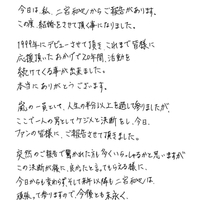 今日は私、二宮和也からご報告があります。
この度、結婚をさせて頂く事になりました。
1999年にデビューさせて頂き これまで皆様に
応援頂いたおかげで20年間、活動を
続けてくる事が出来ました。
本当にありがとうございます。
嵐の一員として、人生の半分以上を過して参りましたが、
ここで一人の男としてケジメと決断をし、今日、
ファンの皆様に、ご報告させて頂きました。
突然のご報告で驚かれた方も多くいらっしゃるかと思いますが
この決断が後に、良かったと言ってもらえる様に、
今日からも変わらず、そして来年以降も 二宮和也は、
頑張って参りますので、今後とも末永く、